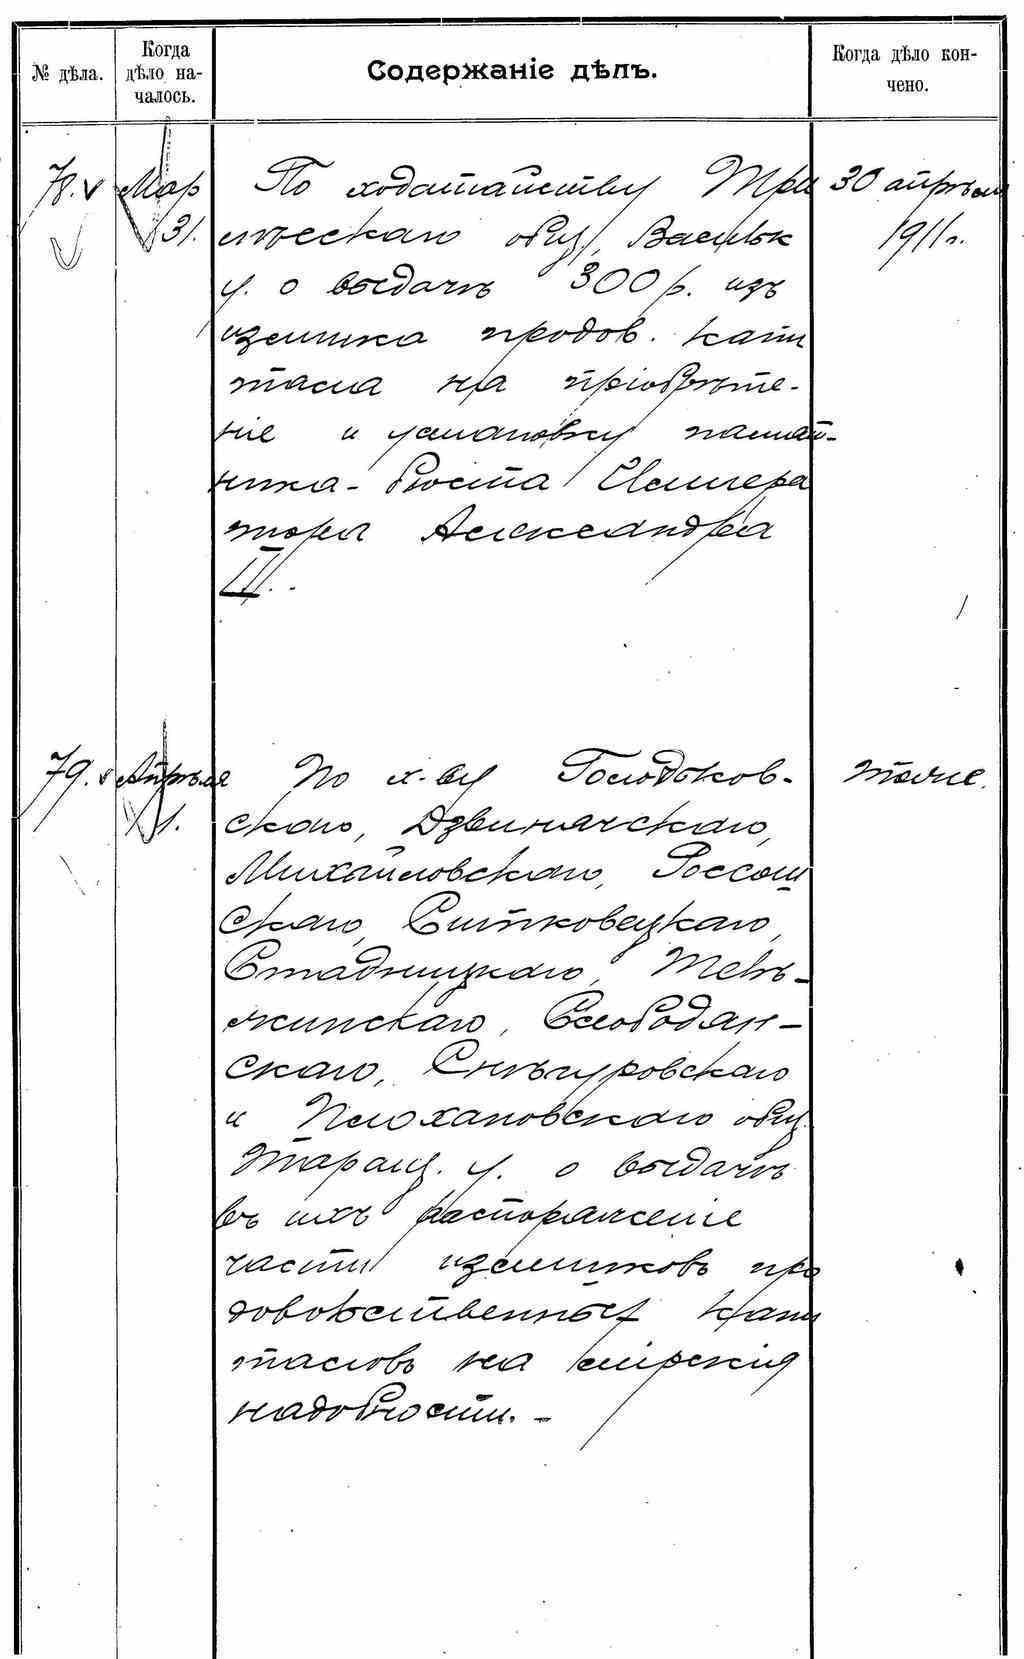 № дѣла.
Когда
дѣло на-
чалось.
Содержаніе дѣлъ.
Когда дѣло кон-
чено.
78.
Мар
31.
По ходатайству Три
лѣсскаго общ., Васильк
у. о выдачѣ 300 р. изъ
излишка продов. капи
тала на пріобрѣте-
ніе и установку памят-
ника-бюста Импера
тора Александра
III.
30 апрѣля
1911 г.
79.
Апрѣля
1.
По х-ву Голодьков-
скаго, Дзвинячскаго,
Михайловскаго, Россош
скаго, Ситковецкаго,
Стадницкаго,
Слободян-
скаго, Снѣгуровскаго
и Плюхановскаго общ.
Таращ. у. о выдачѣ
въ ихъ распоряженіе
части излишковъ про
довольственныхъ капи
таловъ на мірскія
надобности. -
тоже.